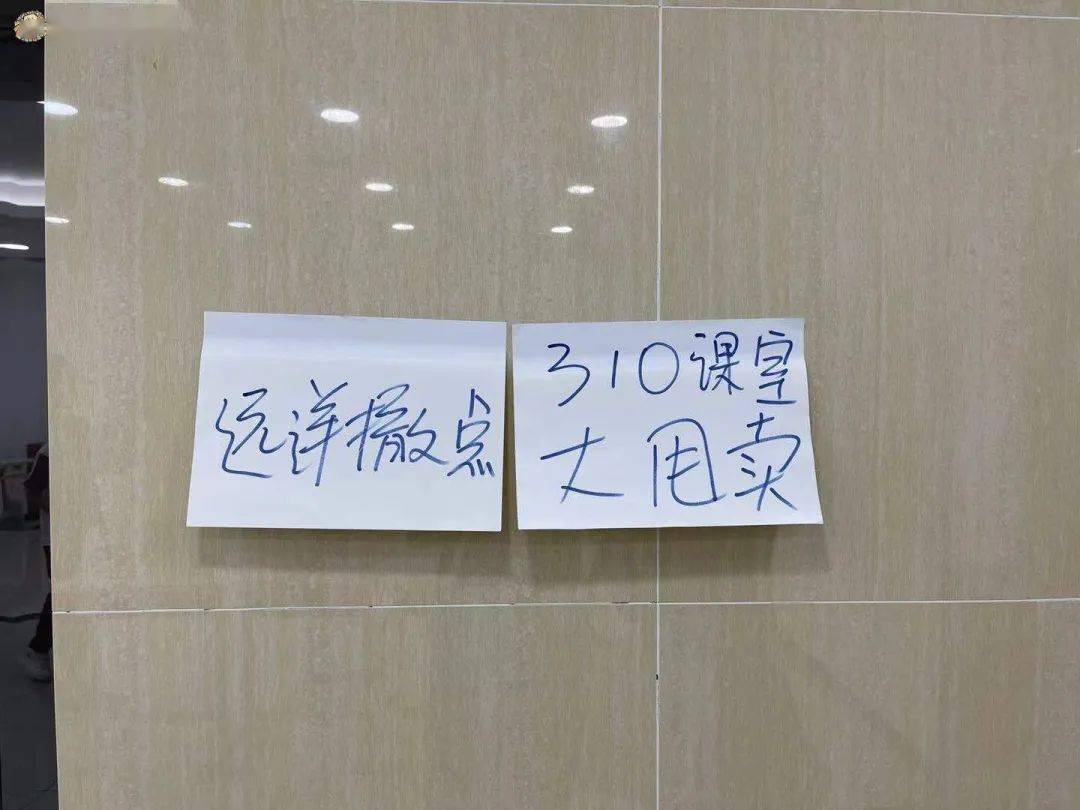 远洋撤点
310课室
大甩卖